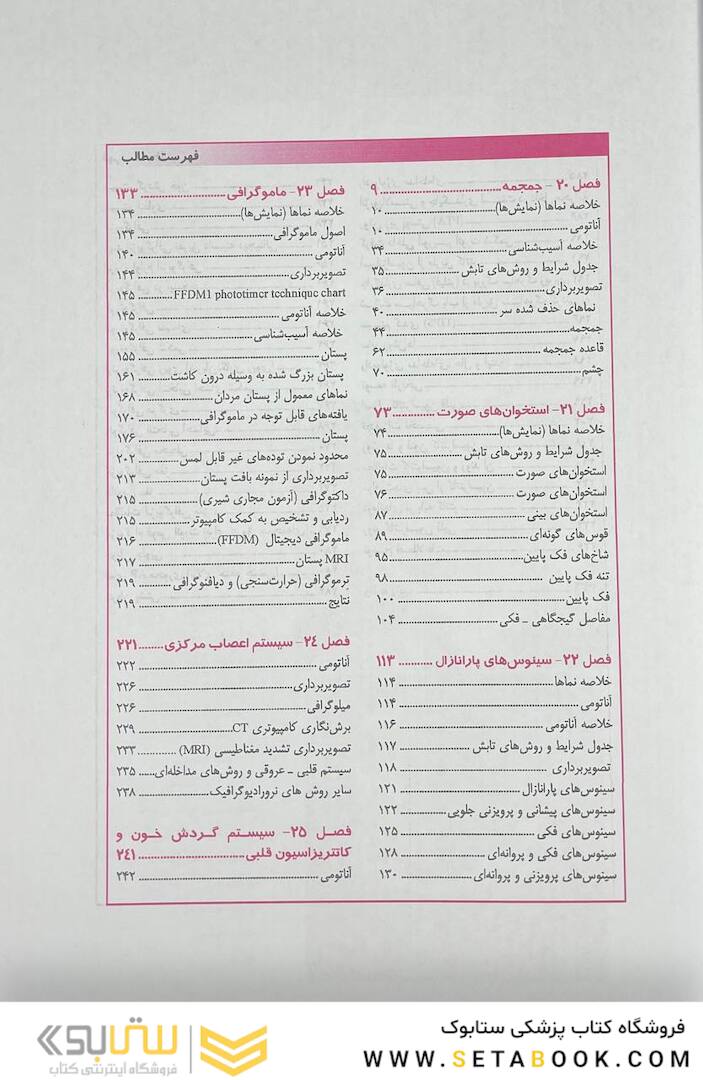 فهرست مطالب
فصل ۲۰- جمجمه ............ ۹
خلاصه نماها (نمایش‌ها) ............ ۱۰
آناتومی ............ ۱۰
خلاصه آسیب‌شناسی ............ ۳۴
جدول شرایط و روش‌های تابش ............ ۳۵
تصویربرداری ............ ۳۶
نماهای حذف شده سر ............ ۴۰
جمجمه ............ ۴۴
قاعده جمجمه ............ ۶۲
چشم ............ ۷۰
فصل ۲۱- استخوان‌های صورت ............ ۷۳
خلاصه نماها (نمایش‌ها) ............ ۷۴
جدول شرایط و روش‌های تابش ............ ۷۵
استخوان‌های صورت ............ ۷۵
استخوان‌های صورت ............ ۷۶
استخوان‌های بینی ............ ۸۷
قوس‌های گونه‌ای ............ ۸۹
شاخ‌های فک پایین ............ ۹۵
تنه فک پایین ............ ۹۸
فک پایین ............ ۱۰۰
مفاصل گیجگاهی ـ فکی ............ ۱۰۴
فصل ۲۲- سینوس‌های پارانازال ............ ۱۱۳
خلاصه نماها ............ ۱۱۴
آناتومی ............ ۱۱۴
خلاصه آناتومی ............ ۱۱۶
جدول شرایط و روش‌های تابش ............ ۱۱۷
تصویربرداری ............ ۱۱۸
سینوس‌های پارانازال ............ ۱۲۱
سینوس‌های پیشانی و پرویزنی جلویی ............ ۱۲۲
سینوس‌های فکی ............ ۱۲۵
سینوس‌های فکی و پروانه‌ای ............ ۱۲۸
سینوس‌های پرویزنی و پروانه‌ای ............ ۱۳۰
فصل ۲۳- ماموگرافی ............ ۱۳۳
خلاصه نماها (نمایش‌ها) ............ ۱۳۴
اصول ماموگرافی ............ ۱۳۴
آناتومی ............ ۱۴۰
تصویربرداری ............ ۱۴۴
FFDM1 phototimer technique chart ............ ۱۴۵
خلاصه آناتومی ............ ۱۴۵
خلاصه آسیب‌شناسی ............ ۱۴۵
پستان ............ ۱۵۵
پستان بزرگ شده به وسیله درون کاشت ............ ۱۶۱
نماهای معمول از پستان مردان ............ ۱۶۸
یافته‌های قابل توجه در ماموگرافی ............ ۱۷۰
پستان ............ ۱۷۶
محدود نمودن توده‌های غیر قابل لمس ............ ۲۰۲
تصویربرداری از نمونه بافت پستان ............ ۲۱۳
داکتوگرافی (آزمون مجاری شیری) ............ ۲۱۵
ردیابی و تشخیص به کمک کامپیوتر ............ ۲۱۵
ماموگرافی دیجیتال (FFDM) ............ ۲۱۶
MRI پستان ............ ۲۱۷
ترموگرافی (حرارت‌سنجی) و دیافنوگرافی ............ ۲۱۹
نتایج ............ ۲۱۹
فصل ۲۴- سیستم اعصاب مرکزی ............ ۲۲۱
آناتومی ............ ۲۲۲
تصویربرداری ............ ۲۲۶
میلوگرافی ............ ۲۲۶
برش‌نگاری کامپیوتری CT ............ ۲۲۹
تصویربرداری تشدید مغناطیسی (MRI) ............ ۲۳۳
سیستم قلبی ـ عروقی و روش‌های مداخله‌ای ............ ۲۳۵
سایر روش های نرورادیوگرافیک ............ ۲۳۸
فصل ۲۵- سیستم گردش خون و
کاتتریزاسیون قلبی ............ ۲۴۱
آناتومی ............ ۲۴۲
فروشگاه کتاب پزشکی ستابوک
WWW.SETABOOK.COM
ستابوک
فروشگاه اینترنتی کتاب